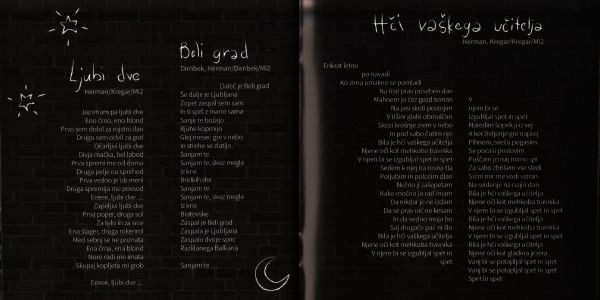 Ljubi dve
Herman/Kregar/Mi2
Jaz imam pa ljubi dve
Eno črno, eno blond
Prvo sem dobil za rojstni dan
Drugo sem odvil za god
Očarljivi ljubi dve
Divja mačka, bel labod
Prva spremi me od doma
Druga pelje na sprehod
Prva vedno je ob meni
Druga spremlja me povsod
Eeeee, ljubi dve ...
Zapeljivi ljubi dve
Prva poper, druga sol
Za telo in za srce
Ena šlager, druga rokenrol
Med seboj se ne poznata
Ena črna, ena blond
Noro radi me imata
Skupaj kopljeta mi grob
Eeeee, ljubi dve ...
Beli grad
Dirnbek, Herman/Dirnbek/Mi2
Daleč je Beli grad
Še dalje je Ljubljana
Zopet zaspal sem sam
In ti spiš z mano sama
Sanje te božajo
Rjuhe koprnijo
Glej mesec gre v nebo
In strehe se zlatijo.
Sanjam te
Sanjam te, skoz megle
Iz krvi
Bridkih dni
Sanjam te
Sanjam te, skoz megle
Iz krvi
Bratovske
Zaspal je Beli grad
Zaspala je Ljubljana
Zaspalo dvoje sonc
Razklanega Balkana
Sanjam te ...
Hči vaškega učitelja
Herman, Kregar/Kregar/Mi2
Enkrat letno
po navadi
Ko zima umakne se pomladi
Na tisti prav poseben dan
Mahnem jo čez gozd teman
Na jasi skriti postojim
V tišini gluhi obmolčim
Skozi krošnje zrem v nebo
In pod sabo čutim njo
Bila je hči vaškega učitelja
Njene oči kot mehkoba travnika
V njem bi se izgubljal spet in spet
Sedem k njej na rosna tla
Poljubim in položim dlan
Nežno ji zašepetam
Kako močno jo rad imam
Da nikdar je ne izdam
Da se prav nič ne kesam
In da vedno moja bo
Saj drugače pač ni šlo
Bila je hči vaškega učitelja
Njene oči kot mehkoba travnika
V njem bi se izgubljal spet in
spet
V
njem bi se
izgubljal spet in spet
Naredim šopek ji iz vej
A ker življenje gre naprej
Pihnem, svečo pogasim
Se počasi poslovim
Puščam jo naj mirno spi
Za sabo zbrišem vse sledi
Srčni mir me vodi vstran
Na svidenje na najin dan
Bila je hči vaškega učitelja
Njene oči kot mehkoba travnika
V njem bi se izgubljal spet in spet
V njem bi se izgubljal spet in spet
Bila je hči vaškega učitelja
Njene oči kot mehkoba travnika
V njem bi se potapljal spet in spet
Bila je hči vaškega učitelja
Njene oči kot gladina jezera
Vanj bi se potapljal spet in spet
Vanj bi se potapljal spet in spet
Spet in spet